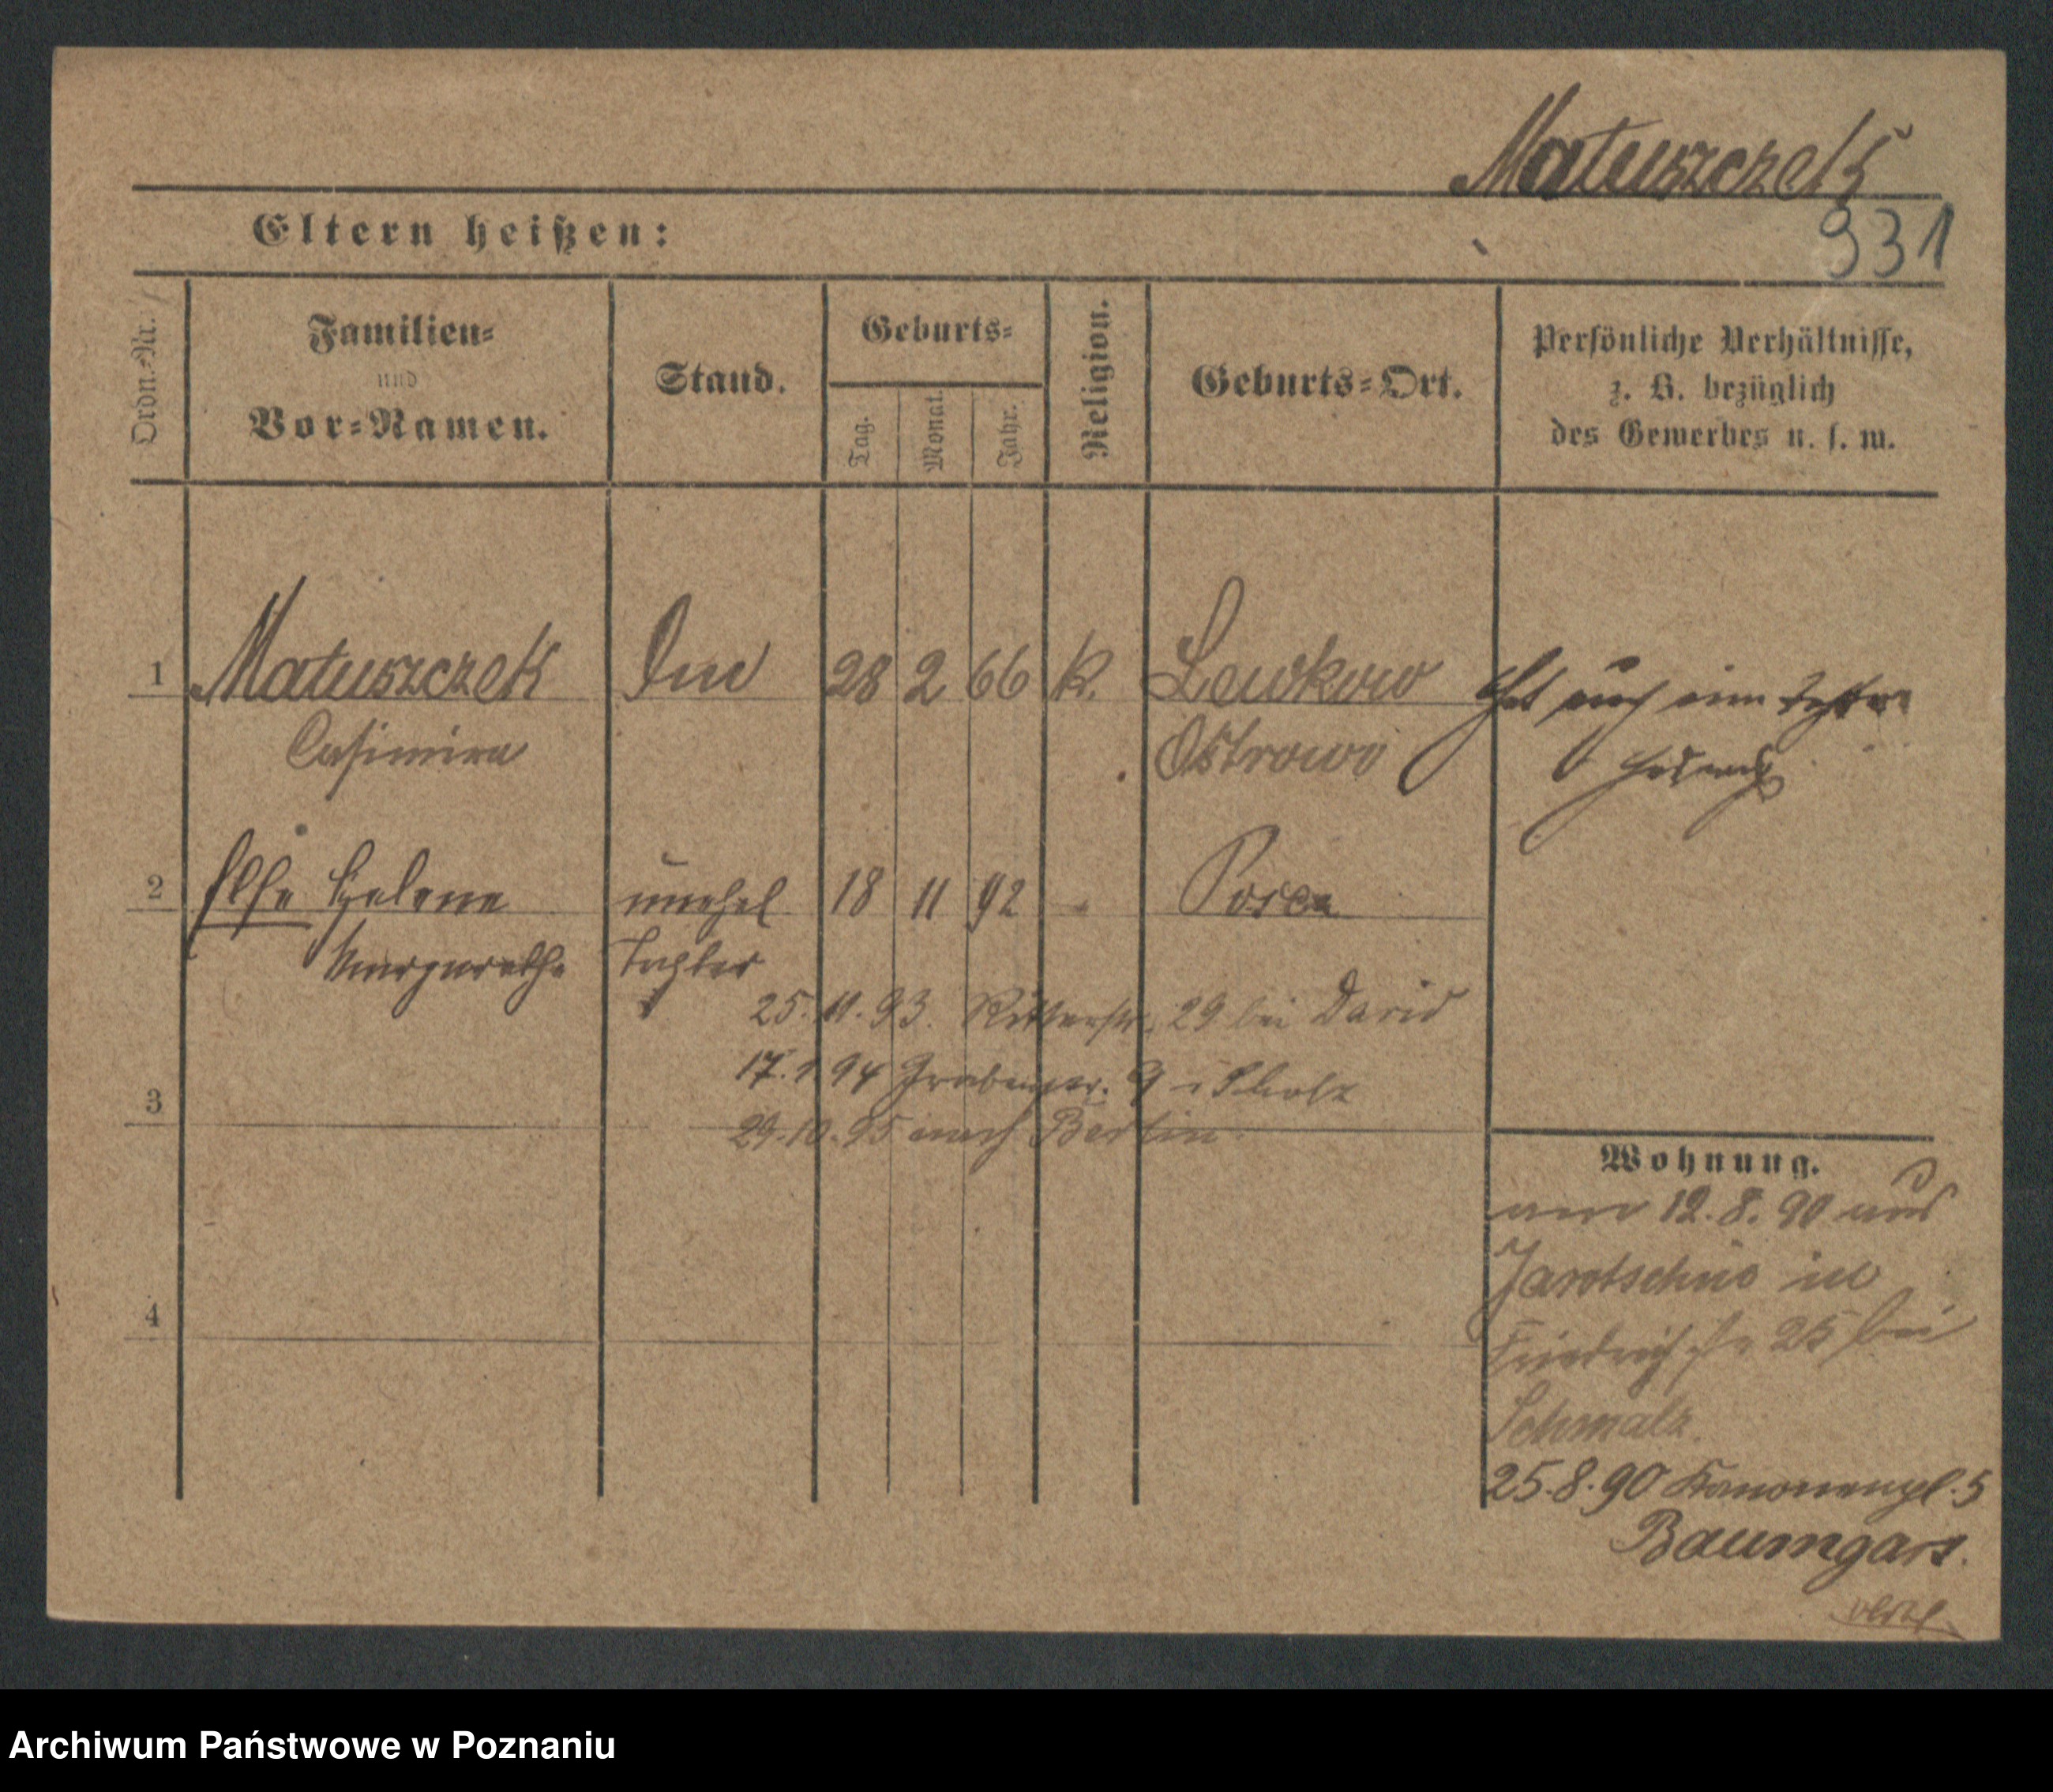 Matuszczek
931
Eltern heißen:
Ordn.-Nr.
Familien=
und
Vor=Namen.
Stand.
Geburts=
Tag.
Monat.
Jahr.
Religion.
Geburts=Ort.
Persönliche Verhältnisse,
z. B. bezüglich
des Gewerbes u. s. w.
1 Matuszczek 28 2 66 K. Lewkow
Casimira Ostrowo
Hat auch eine
2 Else Helene unehel 18 11 92 Posen
Margarethe Tochter
25.11.93. Ritterstr. 29 bei David
17.1.94 Grabenstr. 9 Scholz
3
29.10.95 nach Berlin.
Wohnung.
12.8.90 aus
Jarotschin in
4
Friedrichstr 25 bei
Schmalz.
25.8.90 Kanonenpl. 5
Baumgart.
Archiwum Państwowe w Poznaniu